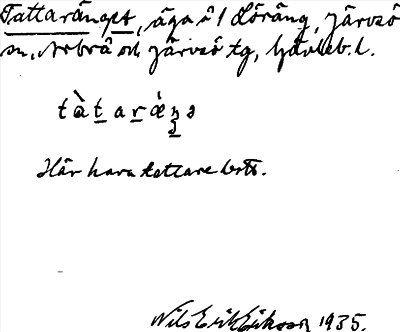 Tattaränget, äga å 1 Löräng, Järvsö
sn, Arbrå och Järvsö tg, Gävleb. l.
tàtaráeŋə
Här hava tattare bott.
Nils Erik Eriksson 1935.